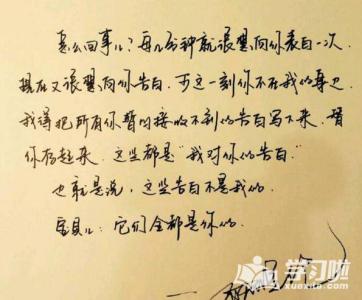 怎么回事儿?每几分钟就很想向你表白一次,
现在又很想向你告白,可这一刻你不在我的身边,
我得把所有你暂时接收不到的告白写下来,替
你存起来,这些都是“我对你的告白”
也就是说,这些告白不是我的,
宝贝儿:它们全都是你的,
学习啦
www.xuexila.com